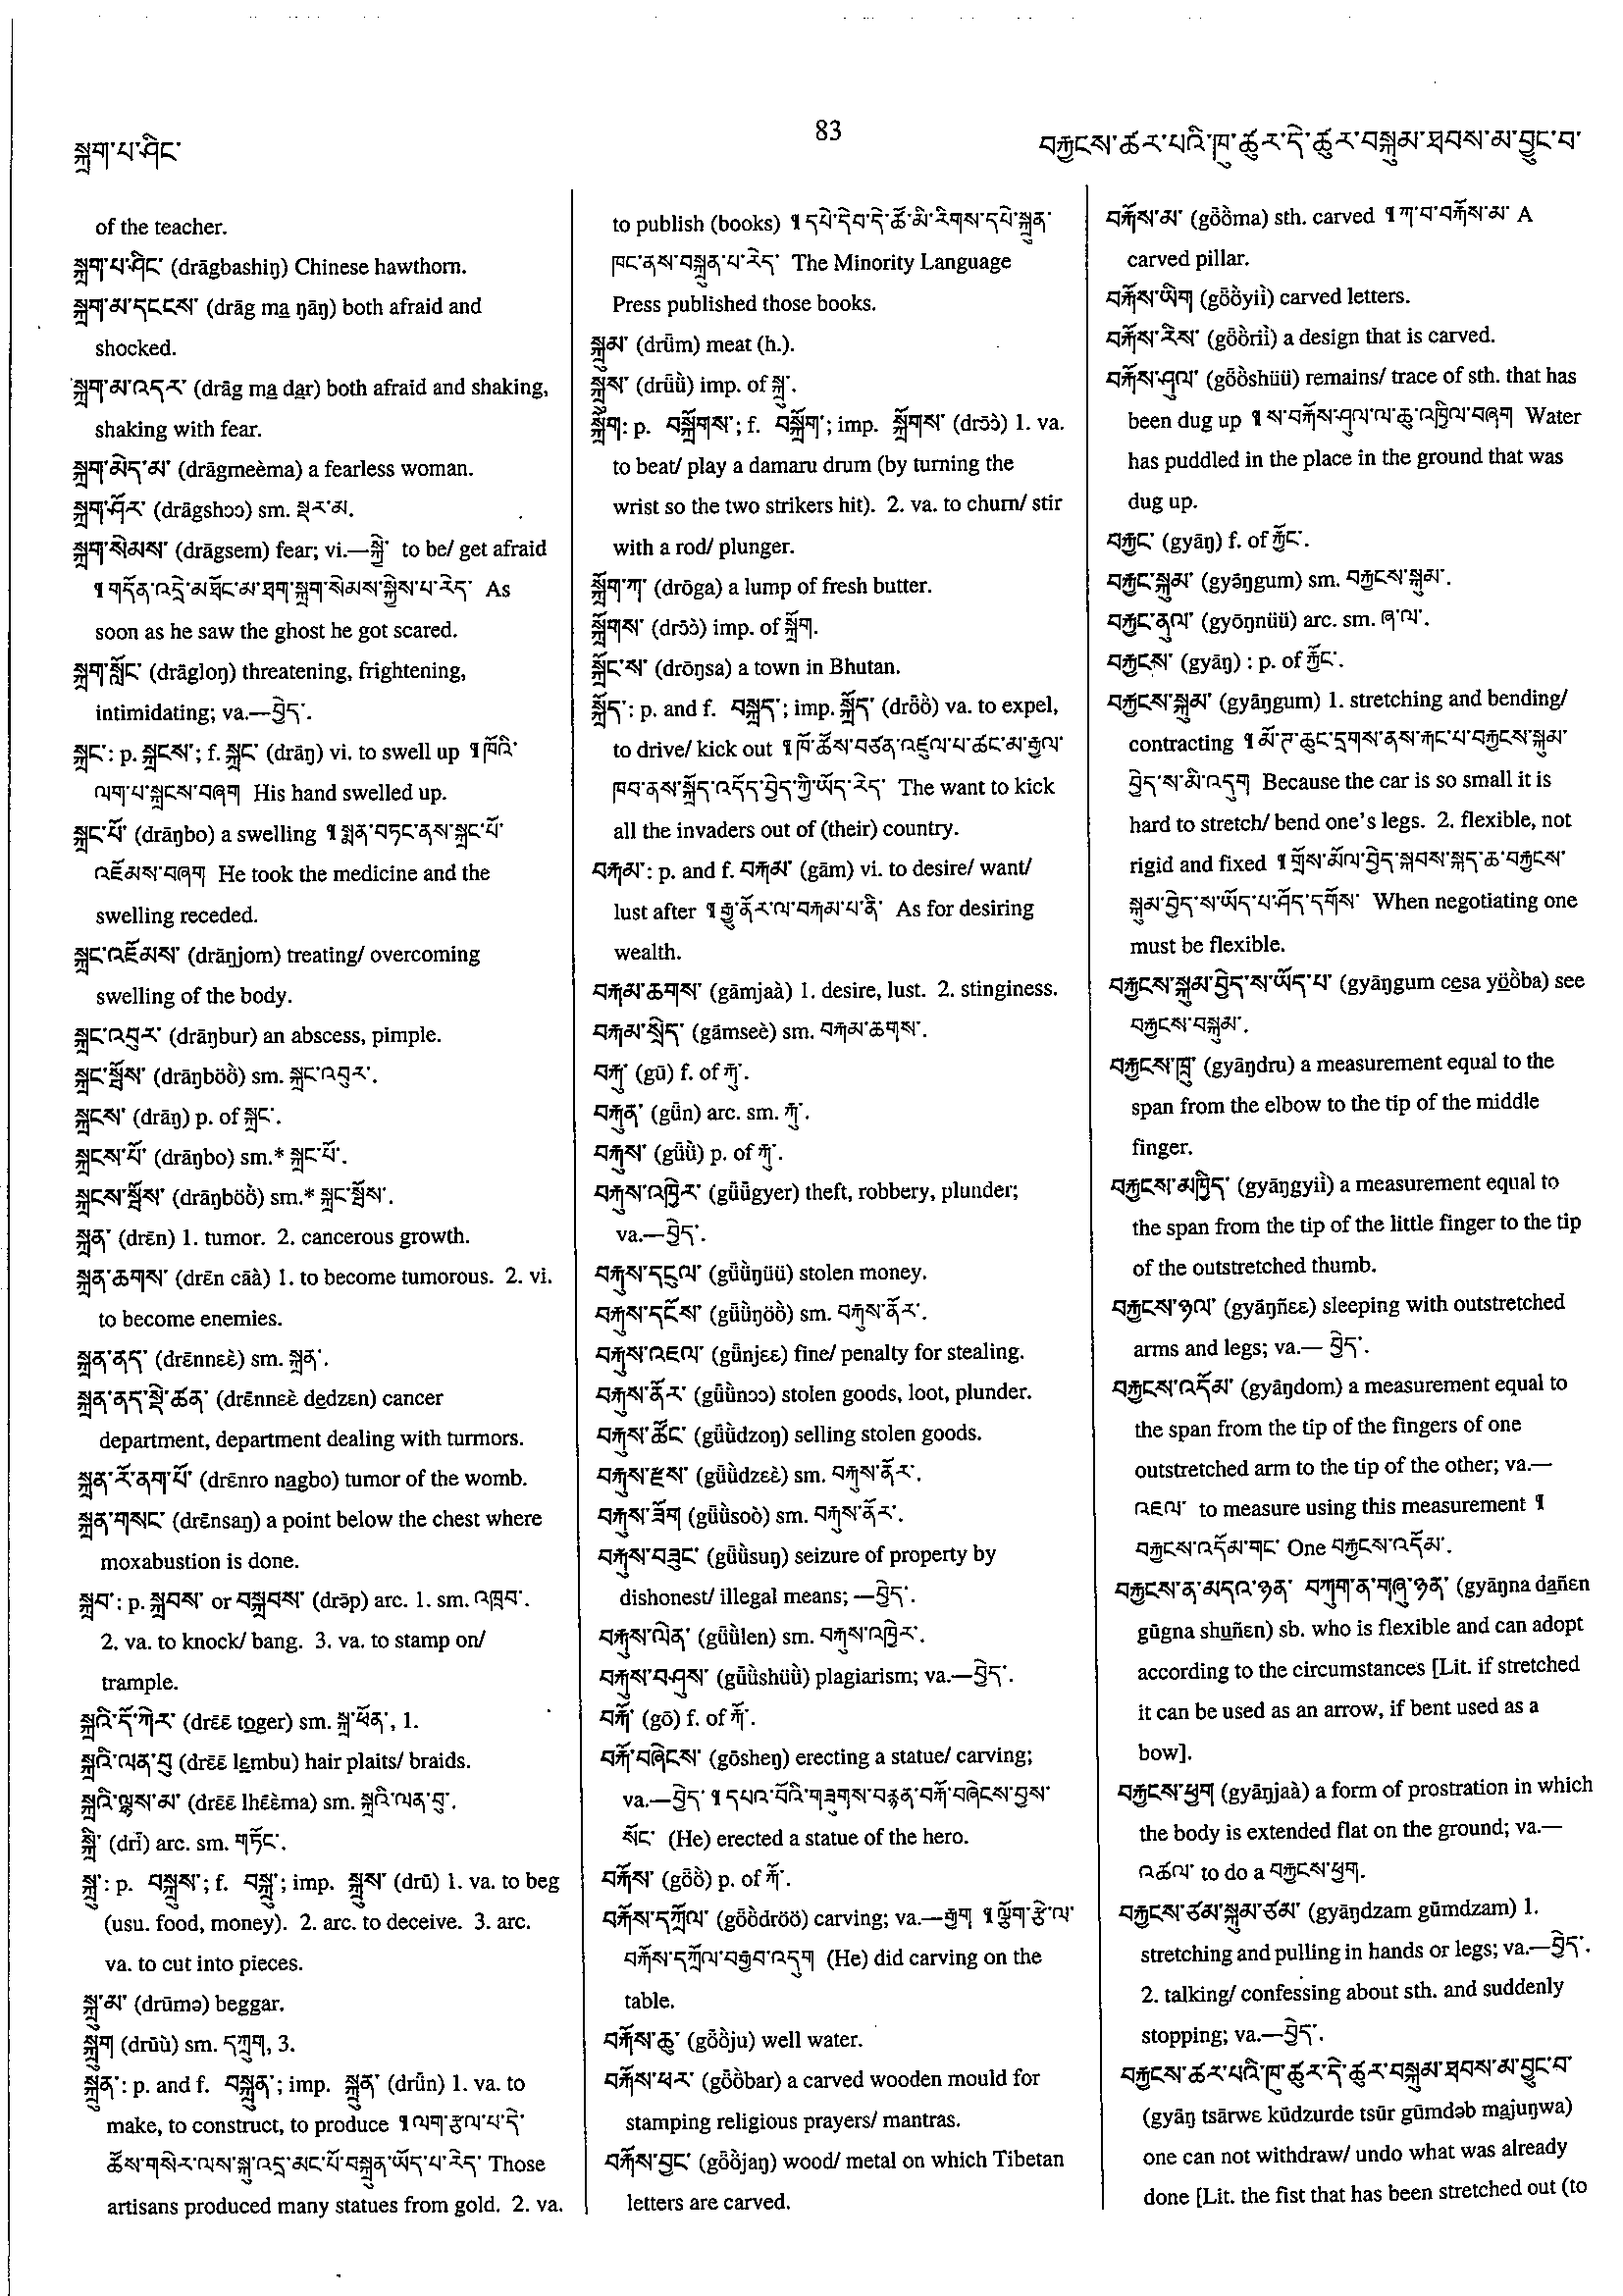 83
སྐྲག་པ་ཤིང་
བརྐྱངས་ཚར་པའི་ཁུ་ཚུར་དེ་ཚུར་བསྐུམ་ཐབས་མ་བྱུང་བ་
of the teacher.
སྐྲག་པ་ཤིང་ (drāgbashiŋ) Chinese hawthorn.
སྐྲག་མ་དངངས་ (drāg ma̱ ŋāŋ) both afraid and
shocked.
སྐྲག་མ་འདར་ (drāg ma̱ da̱r) both afraid and shaking,
shaking with fear.
སྐྲག་མེད་མ་ (drāgmeèma) a fearless woman.
སྐྲག་ཤོར་ (drāgshɔɔ) sm. སྡར་མ.
སྐྲག་སེམས་ (drāgsem) fear; vi.—སྐྱེ་ to be/ get afraid
¶ གདོན་འདྲེ་མཐོང་མ་ཐག་སྐྲག་སེམས་སྐྱེས་པ་རེད་ As
soon as he saw the ghost he got scared.
སྐྲག་སློང་ (drāgloŋ) threatening, frightening,
intimidating; va.—བྱེད་.
སྐྲང་: p. སྐྲངས་; f. སྐྲང་ (drāŋ) vi. to swell up ¶ ཁོའི་
ལག་པ་སྐྲངས་བཞག His hand swelled up.
སྐྲང་པོ་ (drāŋbo) a swelling ¶ སྨན་བཏང་ནས་སྐྲང་པོ་
འཇོམས་བཞག He took the medicine and the
swelling receded.
སྐྲང་འཇོམས་ (drāŋjom) treating/ overcoming
swelling of the body.
སྐྲང་འབུར་ (drāŋbur) an abscess, pimple.
སྐྲང་སྦོས་ (drāŋböö̀) sm. སྐྲང་འབུར་.
སྐྲངས་ (drāŋ) p. of སྐྲང་.
སྐྲངས་པོ་ (drāŋbo) sm.* སྐྲང་པོ་.
སྐྲངས་སྦོས་ (drāŋböö̀) sm.* སྐྲང་སྦོས་.
སྐྲན་ (drɛ̄n) 1. tumor. 2. cancerous growth.
སྐྲན་ཆགས་ (drɛ̄n cāà) 1. to become tumorous. 2. vi.
to become enemies.
སྐྲན་ནད་ (drɛ̄nnɛɛ̀) sm. སྐྲན་.
སྐྲན་ནད་སྡེ་ཚན་ (drɛ̄nnɛɛ̀ de̱dzɛn) cancer
department, department dealing with turmors.
སྐྲན་རོ་ནག་པོ་ (drɛ̄nro na̱gbo) tumor of the womb.
སྐྲན་གསང་ (drɛ̄nsaŋ) a point below the chest where
moxabustion is done.
སྐྲབ་: p. སྐྲབས་ or བསྐྲབས་ (drə̄p) arc. 1. sm. འཁྲབ་.
2. va. to knock/ bang. 3. va. to stamp on/
trample.
སྐྲའི་དོ་ཀེར་ (drɛ̄ɛ̄ to̱ger) sm. སྐྲ་ཕོན་, 1.
སྐྲའི་ལན་བུ (drɛ̄ɛ̄ lɛ̱mbu) hair plaits/ braids.
སྐྲའི་ལྷས་མ་ (drɛ̄ɛ̄ lhɛ̄ɛ̀ma) sm. སྐྲའི་ལན་བུ་.
སྐྲི་ (drī) arc. sm. གཏོང་.
སྐྲུ་: p. བསྐྲུས་; f. བསྐྲུ་; imp. སྐྲུས་ (drū) 1. va. to beg
(usu. food, money). 2. arc. to deceive. 3. arc.
va. to cut into pieces.
སྐྲུ་མ་ (drūmə) beggar.
སྐྲུག (drūù) sm. དཀྲུག, 3.
སྐྲུན་: p. and f. བསྐྲུན་; imp. སྐྲུན་ (drǖn) 1. va. to
make, to construct, to produce ¶ ལག་རྩལ་པ་དེ་
ཚོས་གསེར་ལས་སྐུ་འདྲ་མང་པོ་བསྐྲུན་ཡོད་པ་རེད་ Those
artisans produced many statues from gold. 2. va.
to publish (books) ¶ དཔེ་དེབ་དེ་ཚོ་མི་རིགས་དཔེ་སྐྲུན་
ཁང་ནས་བསྐྲུན་པ་རེད་ The Minority Language
Press published those books.
སྐྲུམ་ (drǖm) meat (h.).
སྐྲུས་ (drǖǜ) imp. of སྐྲུ་.
སྐྲོག: p. བསྐྲོགས་; f. བསྐྲོག་; imp. སྐྲོགས་ (drɔ̄ɔ̀) 1. va.
to beat/ play a damaru drum (by turning the
wrist so the two strikers hit). 2. va. to churn/ stir
with a rod/ plunger.
སྐྲོག་ཀ་ (drōga) a lump of fresh butter.
སྐྲོགས་ (drɔ̄ɔ̀) imp. of སྐྲོག.
སྐྲོང་ས་ (drōŋsa) a town in Bhutan.
སྐྲོད་: p. and f. བསྐྲད་; imp. སྐྲོད་ (drȫö̀) va. to expel,
to drive/ kick out ¶ ཁོ་ཚོས་བཙན་འཛུལ་པ་ཚང་མ་རྒྱལ་
ཁབ་ནས་སྐྲོད་འདོད་བྱེད་ཀྱི་ཡོད་རེད་ The want to kick
all the invaders out of (their) country.
བརྐམ་: p. and f. བརྐམ་ (gām) vi. to desire/ want/
lust after ¶ རྒྱུ་ནོར་ལ་བརྐམ་པ་ནི་ As for desiring
wealth.
བརྐམ་ཆགས་ (gāmjaà) 1. desire, lust. 2. stinginess.
བརྐམ་སྲེད་ (gāmseè) sm. བརྐམ་ཆགས་.
བརྐུ་ (gū) f. of རྐུ་.
བརྐུན་ (gǖn) arc. sm. རྐུ་.
བརྐུས་ (gǖǜ) p. of རྐུ་.
བརྐུས་འཁྱེར་ (gǖǜgyer) theft, robbery, plunder;
va.—བྱེད་.
བརྐུས་དངུལ་ (gǖǜŋüü) stolen money.
བརྐུས་དངོས་ (gǖǜŋöö̀) sm. བརྐུས་ནོར་.
བརྐུས་འཇལ་ (gǖnjɛɛ) fine/ penalty for stealing.
བརྐུས་ནོར་ (gǖǜnɔɔ) stolen goods, loot, plunder.
བརྐུས་ཚོང་ (gǖǜdzoŋ) selling stolen goods.
བརྐུས་རྫས་ (gǖǜdzɛɛ̀) sm. བརྐུས་ནོར་.
བརྐུས་ཟོག (gǖǜsoò) sm. བརྐུས་ནོར་.
བརྐུས་བཟུང་ (gǖǜsuŋ) seizure of property by
dishonest/ illegal means; —བྱེད་.
བརྐུས་ལེན་ (gǖǜlen) sm. བརྐུས་འཁྱེར་.
བརྐུས་བཤུས་ (gǖǜshüǜ) plagiarism; va.—བྱེད་.
བརྐོ་ (gō) f. of རྐོ་.
བརྐོ་བཞེངས་ (gōsheŋ) erecting a statue/ carving;
va.—བྱེད་ ¶ དཔའ་བོའི་གཟུགས་བརྙན་བརྐོ་བཞེངས་བྱས་
སོང་ (He) erected a statue of the hero.
བརྐོས་ (gȫö̀) p. of རྐོ་.
བརྐོས་དཀྲོལ་ (gȫö̀dröö) carving; va.—རྒྱག ¶ ལྕོག་རྩེ་ལ་
བརྐོས་དཀྲོལ་བརྒྱབ་འདུག (He) did carving on the
table.
བརྐོས་ཆུ་ (gȫö̀ju) well water.
བརྐོས་པར་ (gȫö̀bar) a carved wooden mould for
stamping religious prayers/ mantras.
བརྐོས་བྱང་ (gȫö̀jaŋ) wood/ metal on which Tibetan
letters are carved.
བརྐོས་མ་ (gȫö̀ma) sth. carved ¶ ཀ་བ་བརྐོས་མ་ A
carved pillar.
བརྐོས་ཡིག (gȫö̀yiì) carved letters.
བརྐོས་རིས་ (gȫö̀riì) a design that is carved.
བརྐོས་ཤུལ་ (gȫö̀shüü) remains/ trace of sth. that has
been dug up ¶ ས་བརྐོས་ཤུལ་ལ་ཆུ་འཁྱིལ་བཞག Water
has puddled in the place in the ground that was
dug up.
བརྐྱང་ (gyāŋ) f. of རྐྱོང་.
བརྐྱང་སྐུམ་ (gyāŋgum) sm. བརྐྱངས་སྐུམ་.
བརྐྱང་ནུལ་ (gyōŋnüü) arc. sm. ཞ་ལ་.
བརྐྱངས་ (gyāŋ) : p. of རྐྱོང་.
བརྐྱངས་སྐུམ་ (gyāŋgum) 1. stretching and bending/
contracting ¶ མོ་ཊ་ཆུང་དྲགས་ནས་རྐང་པ་བརྐྱངས་སྐུམ་
བྱེད་ས་མི་འདུག Because the car is so small it is
hard to stretch/ bend one's legs. 2. flexible, not
rigid and fixed ¶ གྲོས་མོལ་བྱེད་སྐབས་སྐད་ཆ་བརྐྱངས་
སྐུམ་བྱེད་ས་ཡོད་པ་ཤོད་དགོས་ When negotiating one
must be flexible.
བརྐྱངས་སྐུམ་བྱེད་ས་ཡོད་པ་ (gyāŋgum ce̱sa yö̱ö̀ba) see
བརྐྱངས་བསྐུམ་.
བརྐྱངས་ཁྲུ་ (gyāŋdru) a measurement equal to the
span from the elbow to the tip of the middle
finger.
བརྐྱངས་མཁྱིད་ (gyāŋgyiì) a measurement equal to
the span from the tip of the little finger to the tip
of the outstretched thumb.
བརྐྱངས་ཉལ་ (gyāŋñɛɛ) sleeping with outstretched
arms and legs; va.— བྱེད་.
བརྐྱངས་འདོམ་ (gyāŋdom) a measurement equal to
the span from the tip of the fingers of one
outstretched arm to the tip of the other; va.—
འཇལ་ to measure using this measurement ¶
བརྐྱངས་འདོམ་གང་ One བརྐྱངས་འདོམ་.
བརྐྱངས་ན་མདའ་ཉན་ བཀུག་ན་གཞུ་ཉན་ (gyāŋna da̱ñɛn
gūgna shu̱ñɛn) sb. who is flexible and can adopt
according to the circumstances [Lit. if stretched
it can be used as an arrow, if bent used as a
bow].
བརྐྱངས་ཕྱག (gyāŋjaà) a form of prostration in which
the body is extended flat on the ground; va.—
འཚལ་ to do a བརྐྱངས་ཕྱག.
བརྐྱངས་ཙམ་སྐུམ་ཙམ་ (gyāŋdzam gūmdzam) 1.
stretching and pulling in hands or legs; va.—བྱེད་.
2. talking/ confessing about sth. and suddenly
stopping; va.—བྱེད་.
བརྐྱངས་ཚར་པའི་ཁུ་ཚུར་དེ་ཚུར་བསྐུམ་ཐབས་མ་བྱུང་བ་
(gyāŋ tsārwɛ kūdzurde tsūr gūmdəb ma̱juŋwa)
one can not withdraw/ undo what was already
done [Lit. the fist that has been stretched out (to